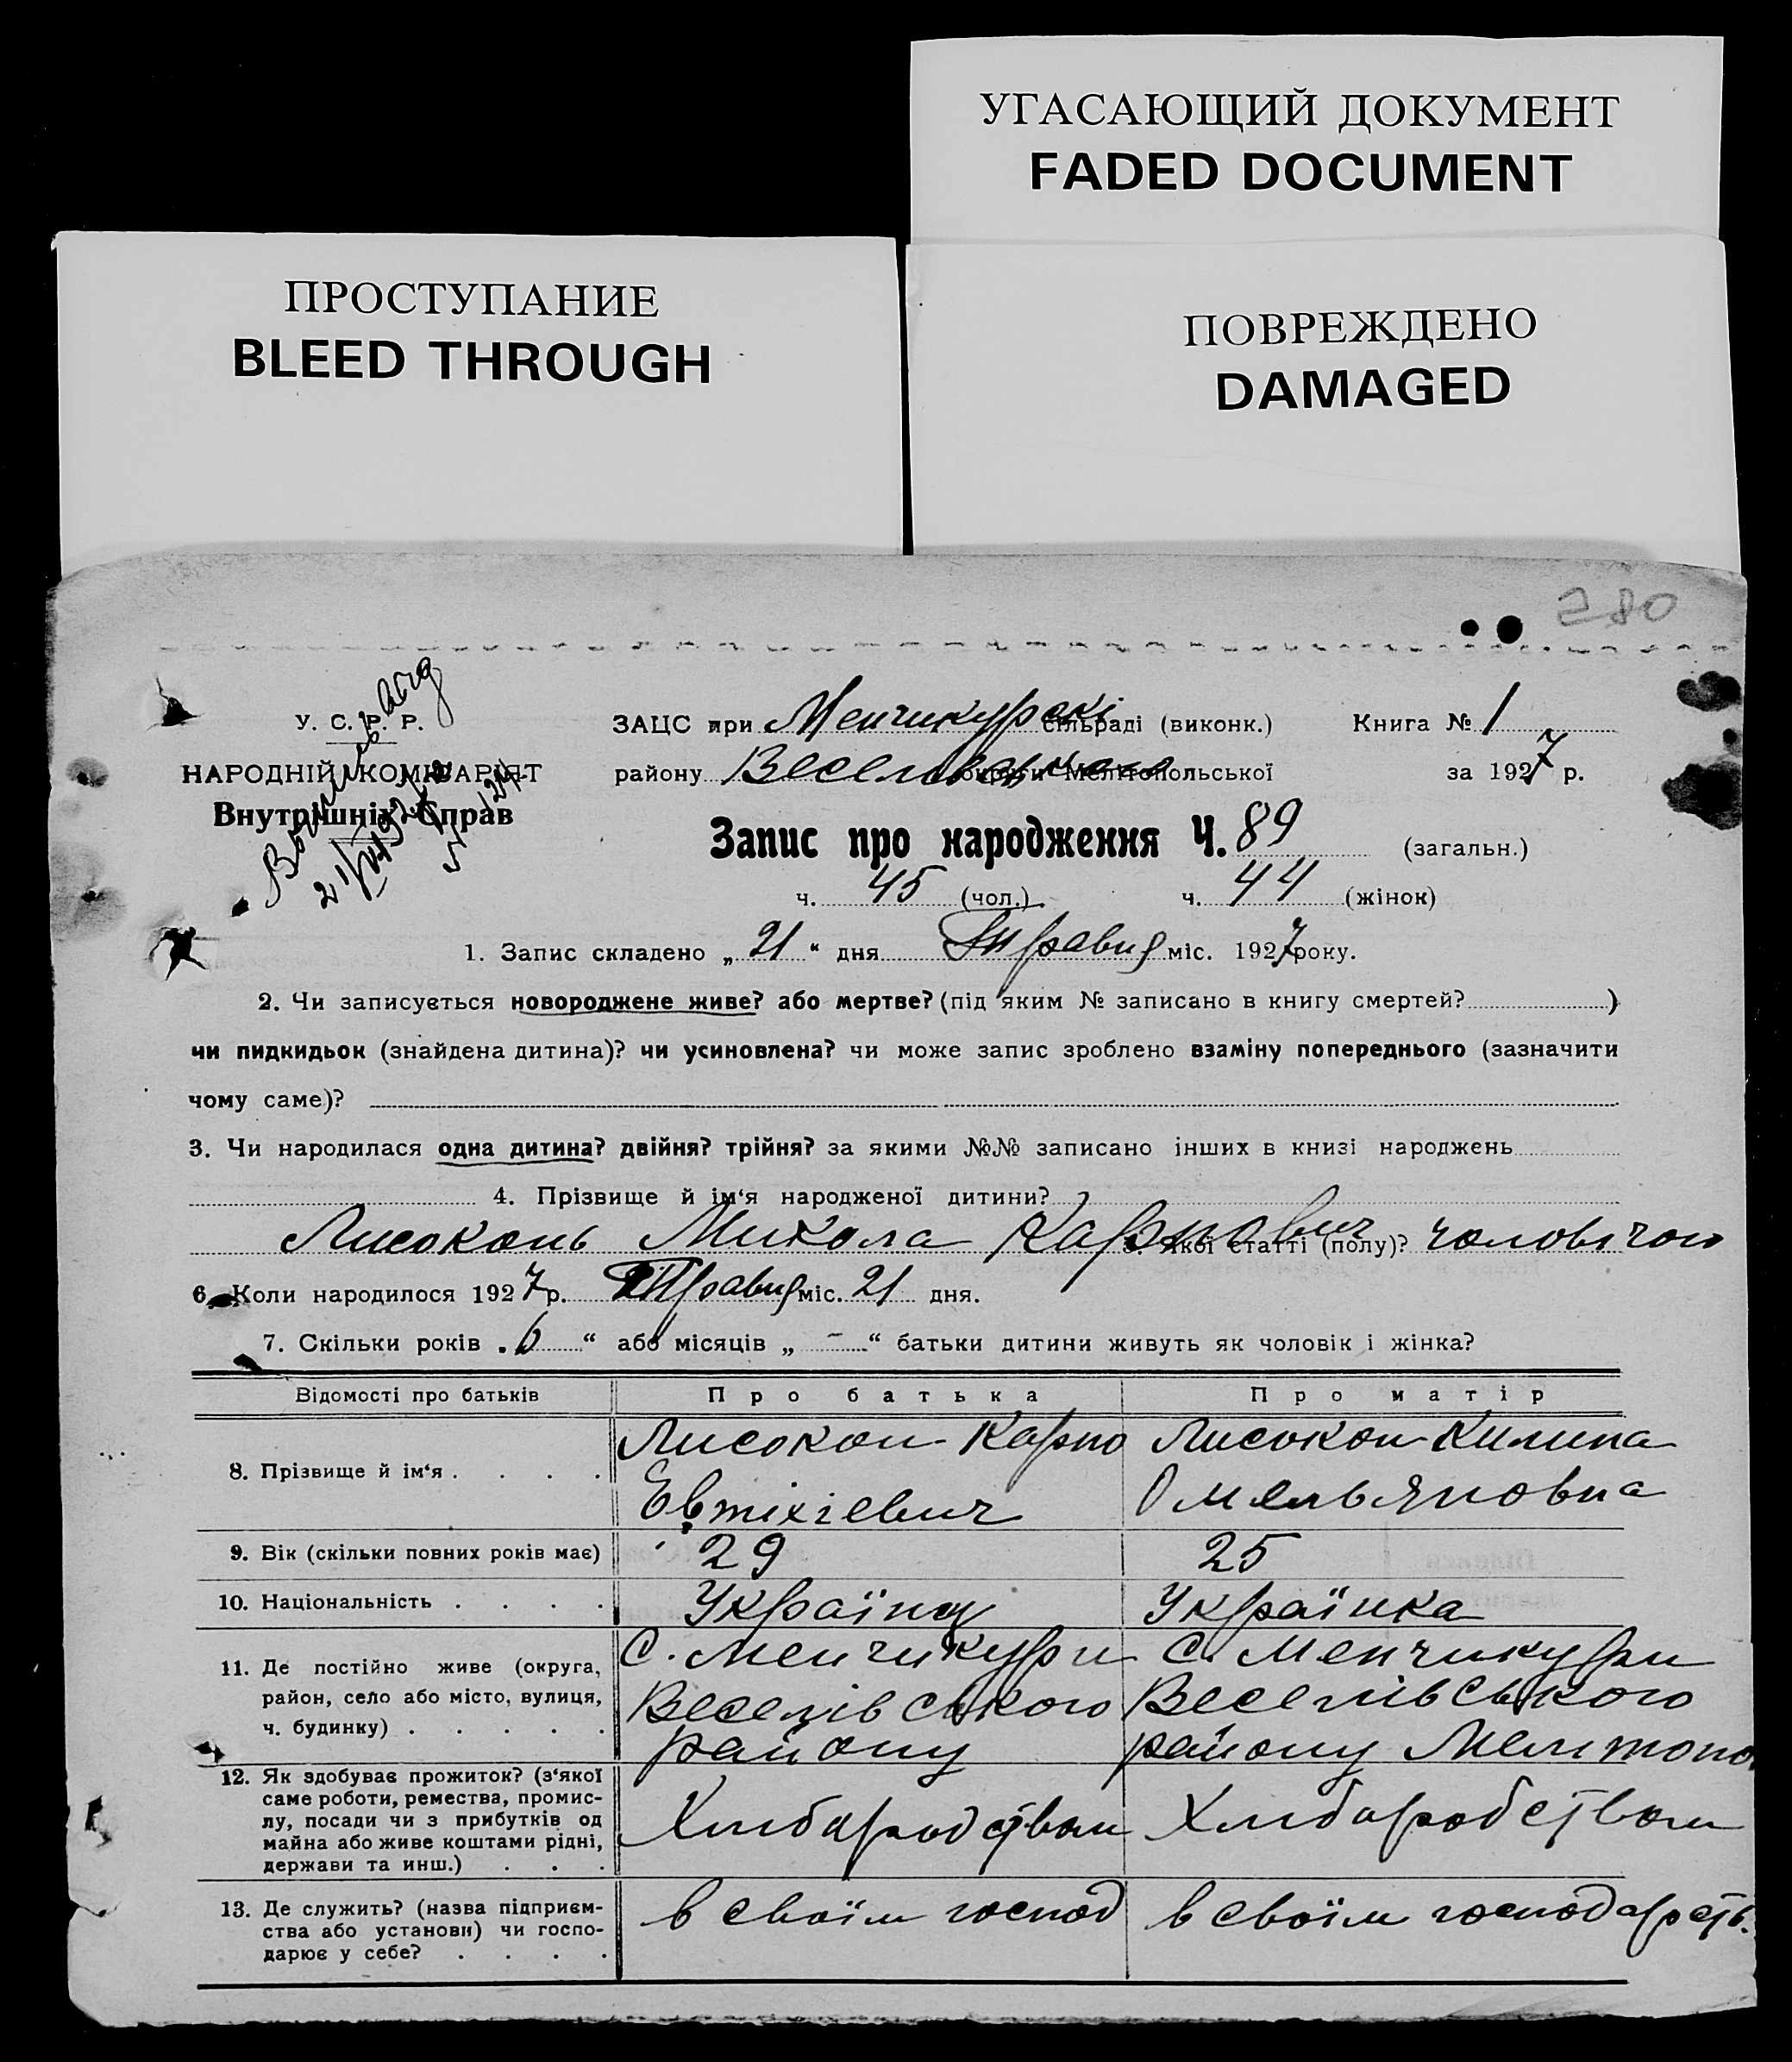 УГАСАЮЩИЙ ДОКУМЕНТ
FADED DOCUMENT
ПРОСТУПАНИЕ
BLEED THROUGH
ПОВРЕЖДЕНО
DAMAGED
280
У. С. Р. Р.
НАРОДНІЙ КОМІСАРІЯТ
Внутрішніх Справ
ЗАЦС при Менчикурскі сільраді (виконк.) Книга № 1
району округи Мелітопольської за 1927 р.
Запис про народження Ч. 89 (загальн.)
ч. 45 (чол.) ч. 44 (жінок)
1. Запис складено „ 21 “ дня Травня міс. 1927 року.
2. Чи записується новороджене живе? або мертве? (під яким № записано в книгу смертей? )
чи пидкидьок (знайдена дитина)? чи усиновлена? чи може запис зроблено взаміну попереднього (зазначити
чому саме)?
3. Чи народилася одна дитина? двійня? трійня? за якими №№ записано інших в книзі народжень
4. Прізвище й ім‘я народженої дитини?
Лисоконь Микола Карпович 5. Якої статті (полу)? чоловічого
6. Коли народилося 1927 р. Травня міс. 21 дня.
7. Скільки років „ 6 “ або місяців „ - “ батьки дитини живуть як чоловік і жінка?
Відомості про батьків Про батька Про матір
8. Прізвище й ім‘я . . . . Лисокон Карпо Лисокон Килина
Евтіхіевич Омельяновна
9. Вік (скільки повних років має) 29 25
10. Національність . . . . Українец Українка
11. Де постійно живе (округа, С. Менчикури С. Менчикури
район, село або місто, вулиця, Веселівського Веселівського
ч. будинку) . . . . . району району Мелитопо
12. Як здобуває прожиток? (з‘якої
саме роботи, ремества, промис-
лу, посади чи з прибутків од Хлибаробством Хлибаробством
майна або живе коштами рідні,
держави та инш.) . . .
13. Де служить? (назва підприєм- в своїм господ в своїм господарств.
ства або установи) чи госпо-
дарює у себе? . . . .